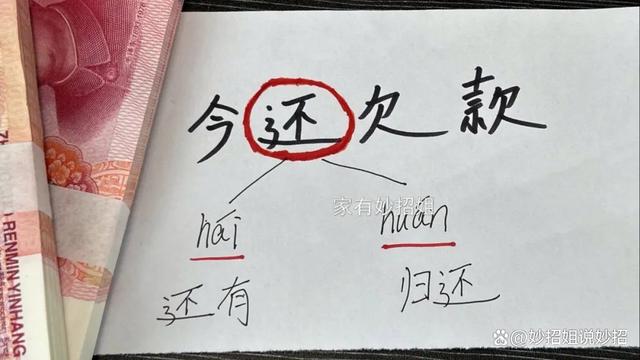 今还欠款
家有妙招姐
hái huán
还有 归还
RENMIN YINHANG
@妙招姐说妙招